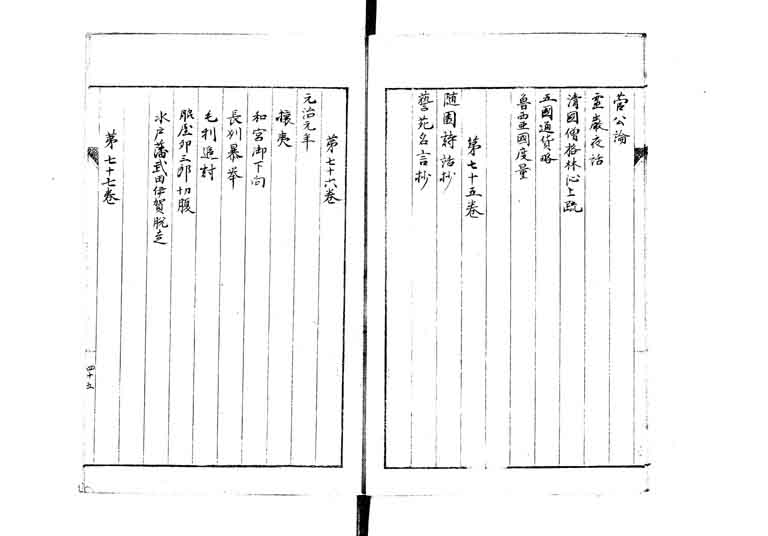 菅公論
霊巌夜話
清国僧格林沁上疏
五國通貨略
魯西亜國度量
第七十五巻
随園詩話抄
藝苑名言抄
第七十六巻
元治元年
攘夷
和宮御下向
長州暴挙
毛利追討
脇屋卯三郎切腹
水戸藩武田伊賀脱走
第七十七巻
四十五